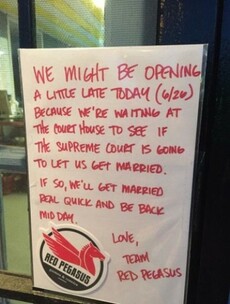 WE MIGHT BE OPENING
A LITTLE LATE TODAY (6/26)
BECAUSE WE'RE WAITING AT
THE COURT HOUSE TO SEE IF
THE SUPREME COURT IS GOING
TO LET US GET MARRIED.
IF SO, WE'LL GET MARRIED
REAL QUICK AND BE BACK
MID DAY.
LOVE,
TEAM
RED PEGASUS
RED PEGASUS